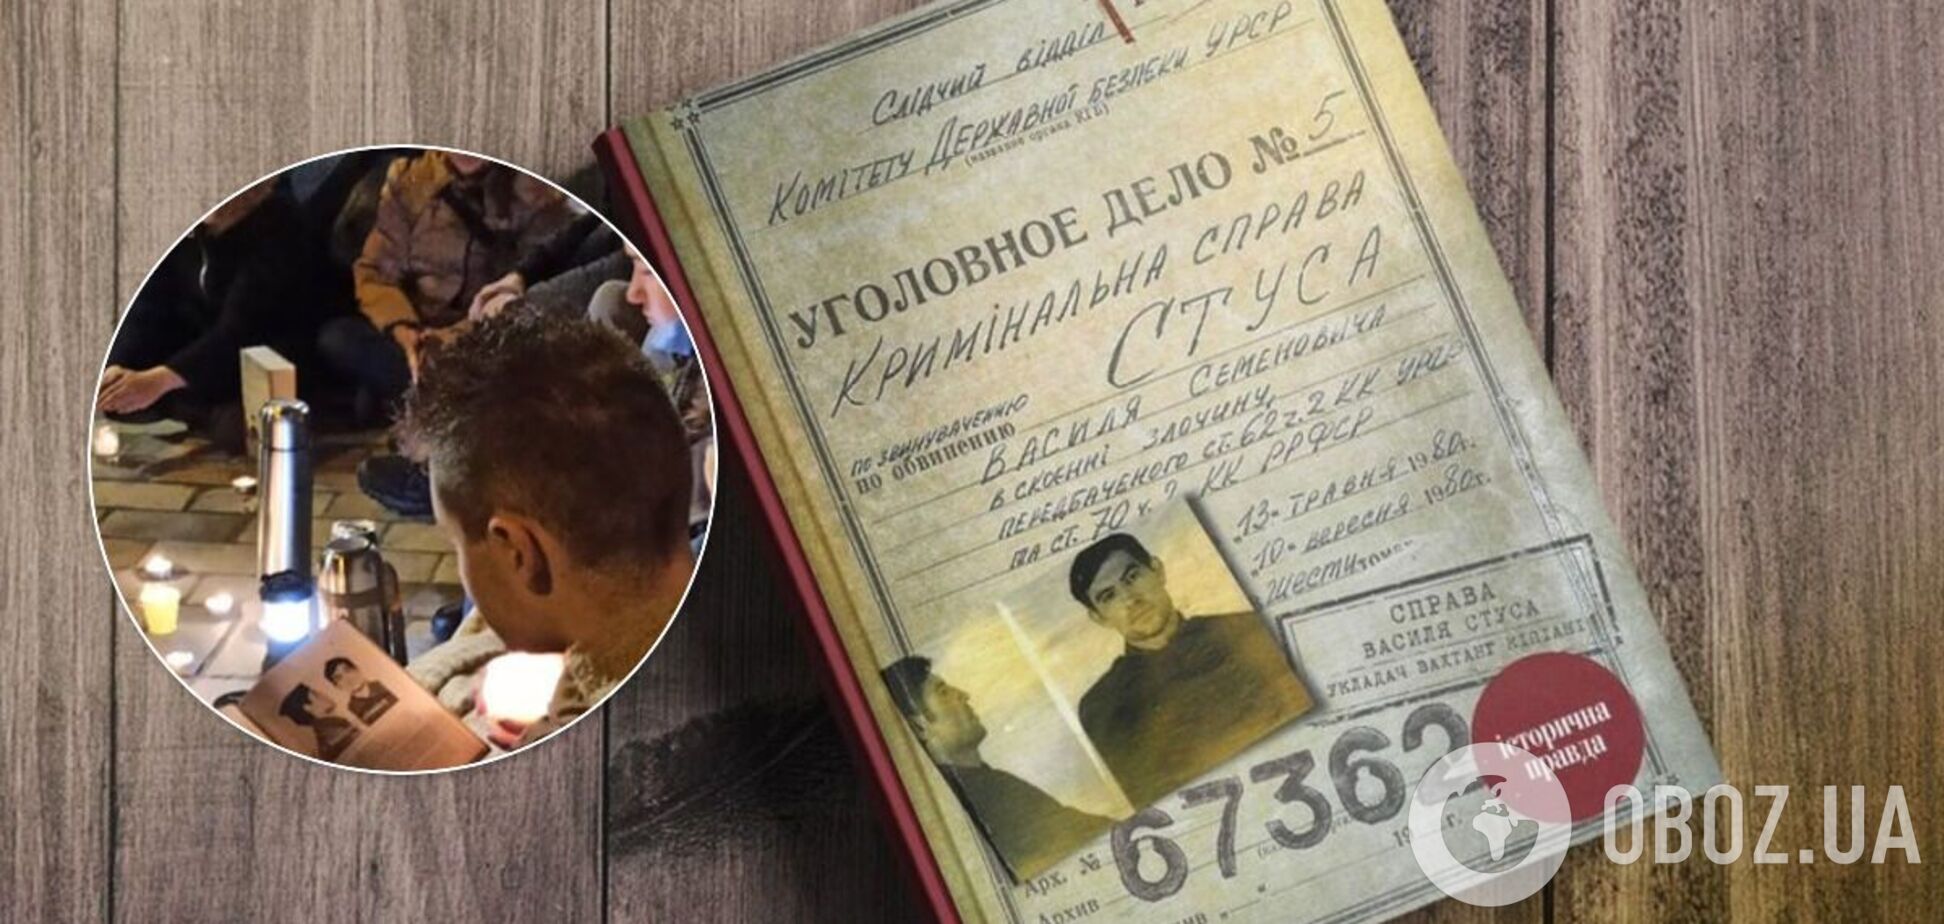 Слідчий відділ
Комітету Державної безпеки УРСР
(название органа КГБ)
УГОЛОВНОЕ ДЕЛО № 5
Кримінальна справа
СТУСА
по звинуваченню
по обвинению
Василя Семеновича
в скоєнні злочину,
передбаченого ст. 62 ч. 2 КК УРСР
та ст. 70 ч. 2 КК РРФСР
"13" травня 1980г.
"10" вересня 1980г.
шести томах
СПРАВА
ВАСИЛЯ СТУСА
УКЛАДАЧ ВАХТАНГ КІПІАНІ
історична
правда
Арх. № 67362
Архив
OBOZ.UA